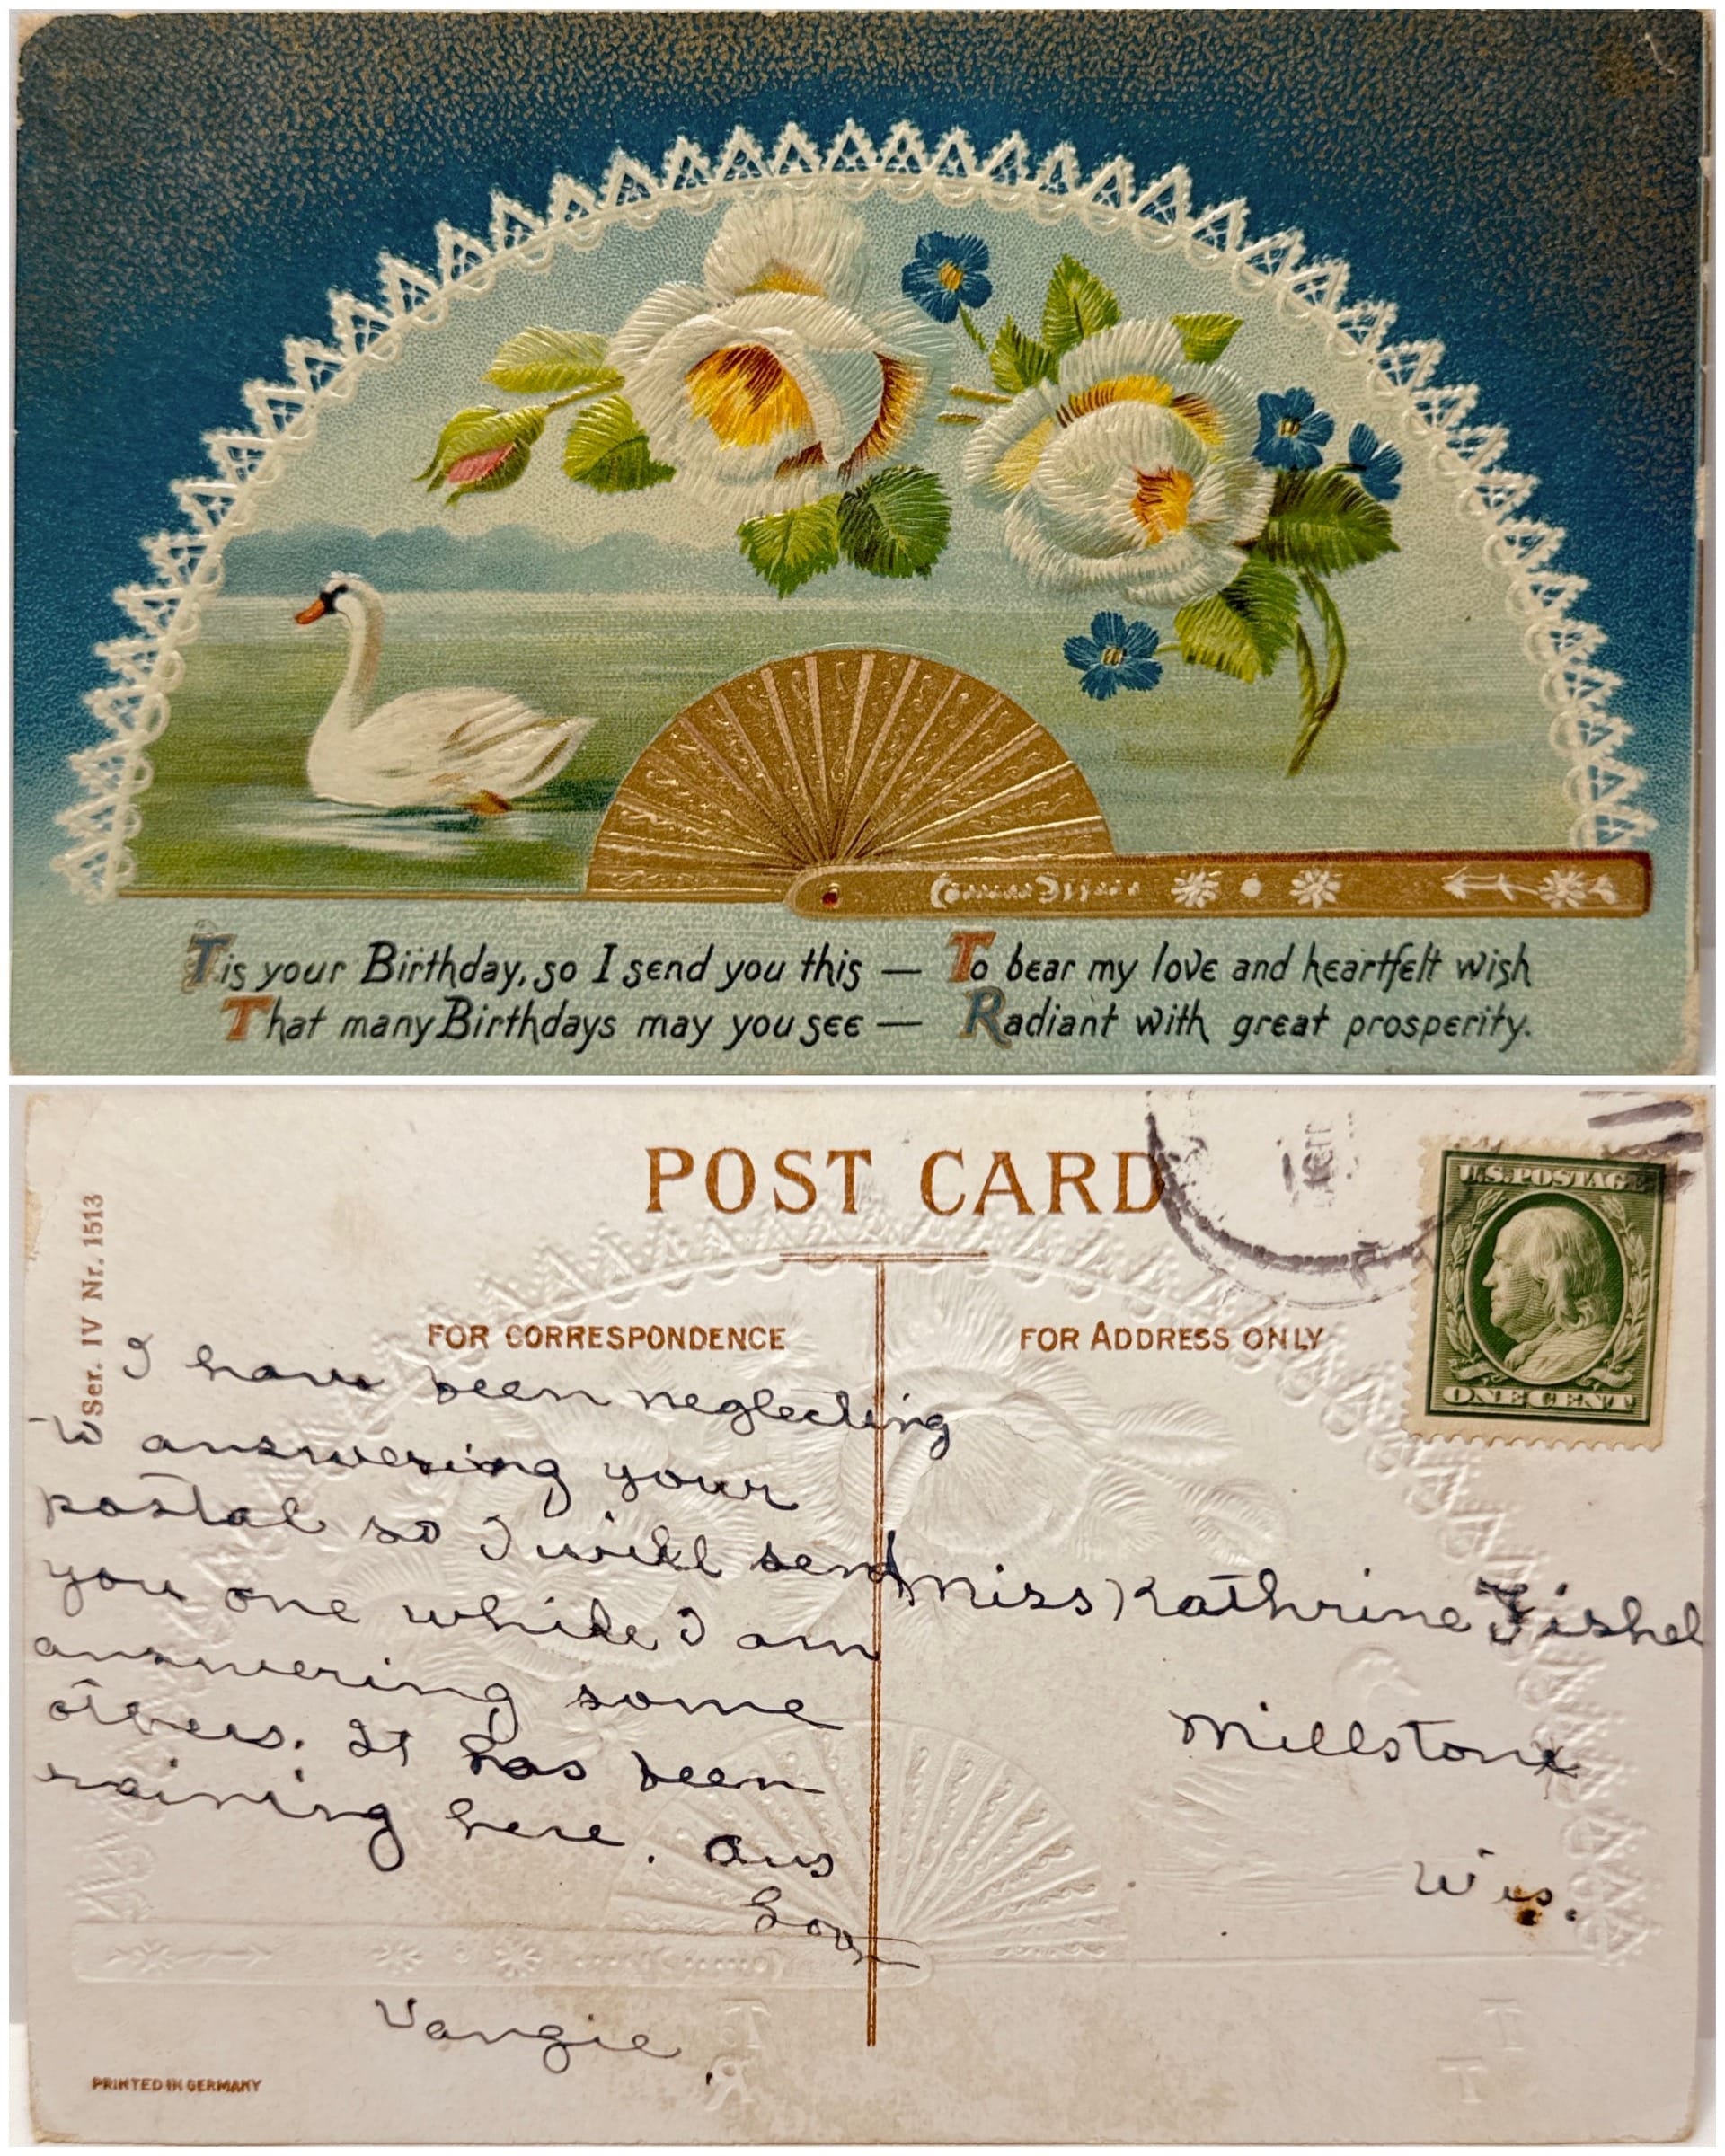 Tis your Birthday, so I send you this — To bear my love and heartfelt wish
That many Birthdays may you see — Radiant with great prosperity.
POST CARD
Ser. IV Nr. 1513
U.S. POSTAGE
ONE CENT
FOR CORRESPONDENCE
FOR ADDRESS ONLY
I have been neglecting
to answering your
postal so I will send
you one while I am
answering some
others. It has been
raining here. Ans
Soon
Vangie.
Miss Kathrine Fishel
Millstone
Wis.
PRINTED IN GERMANY